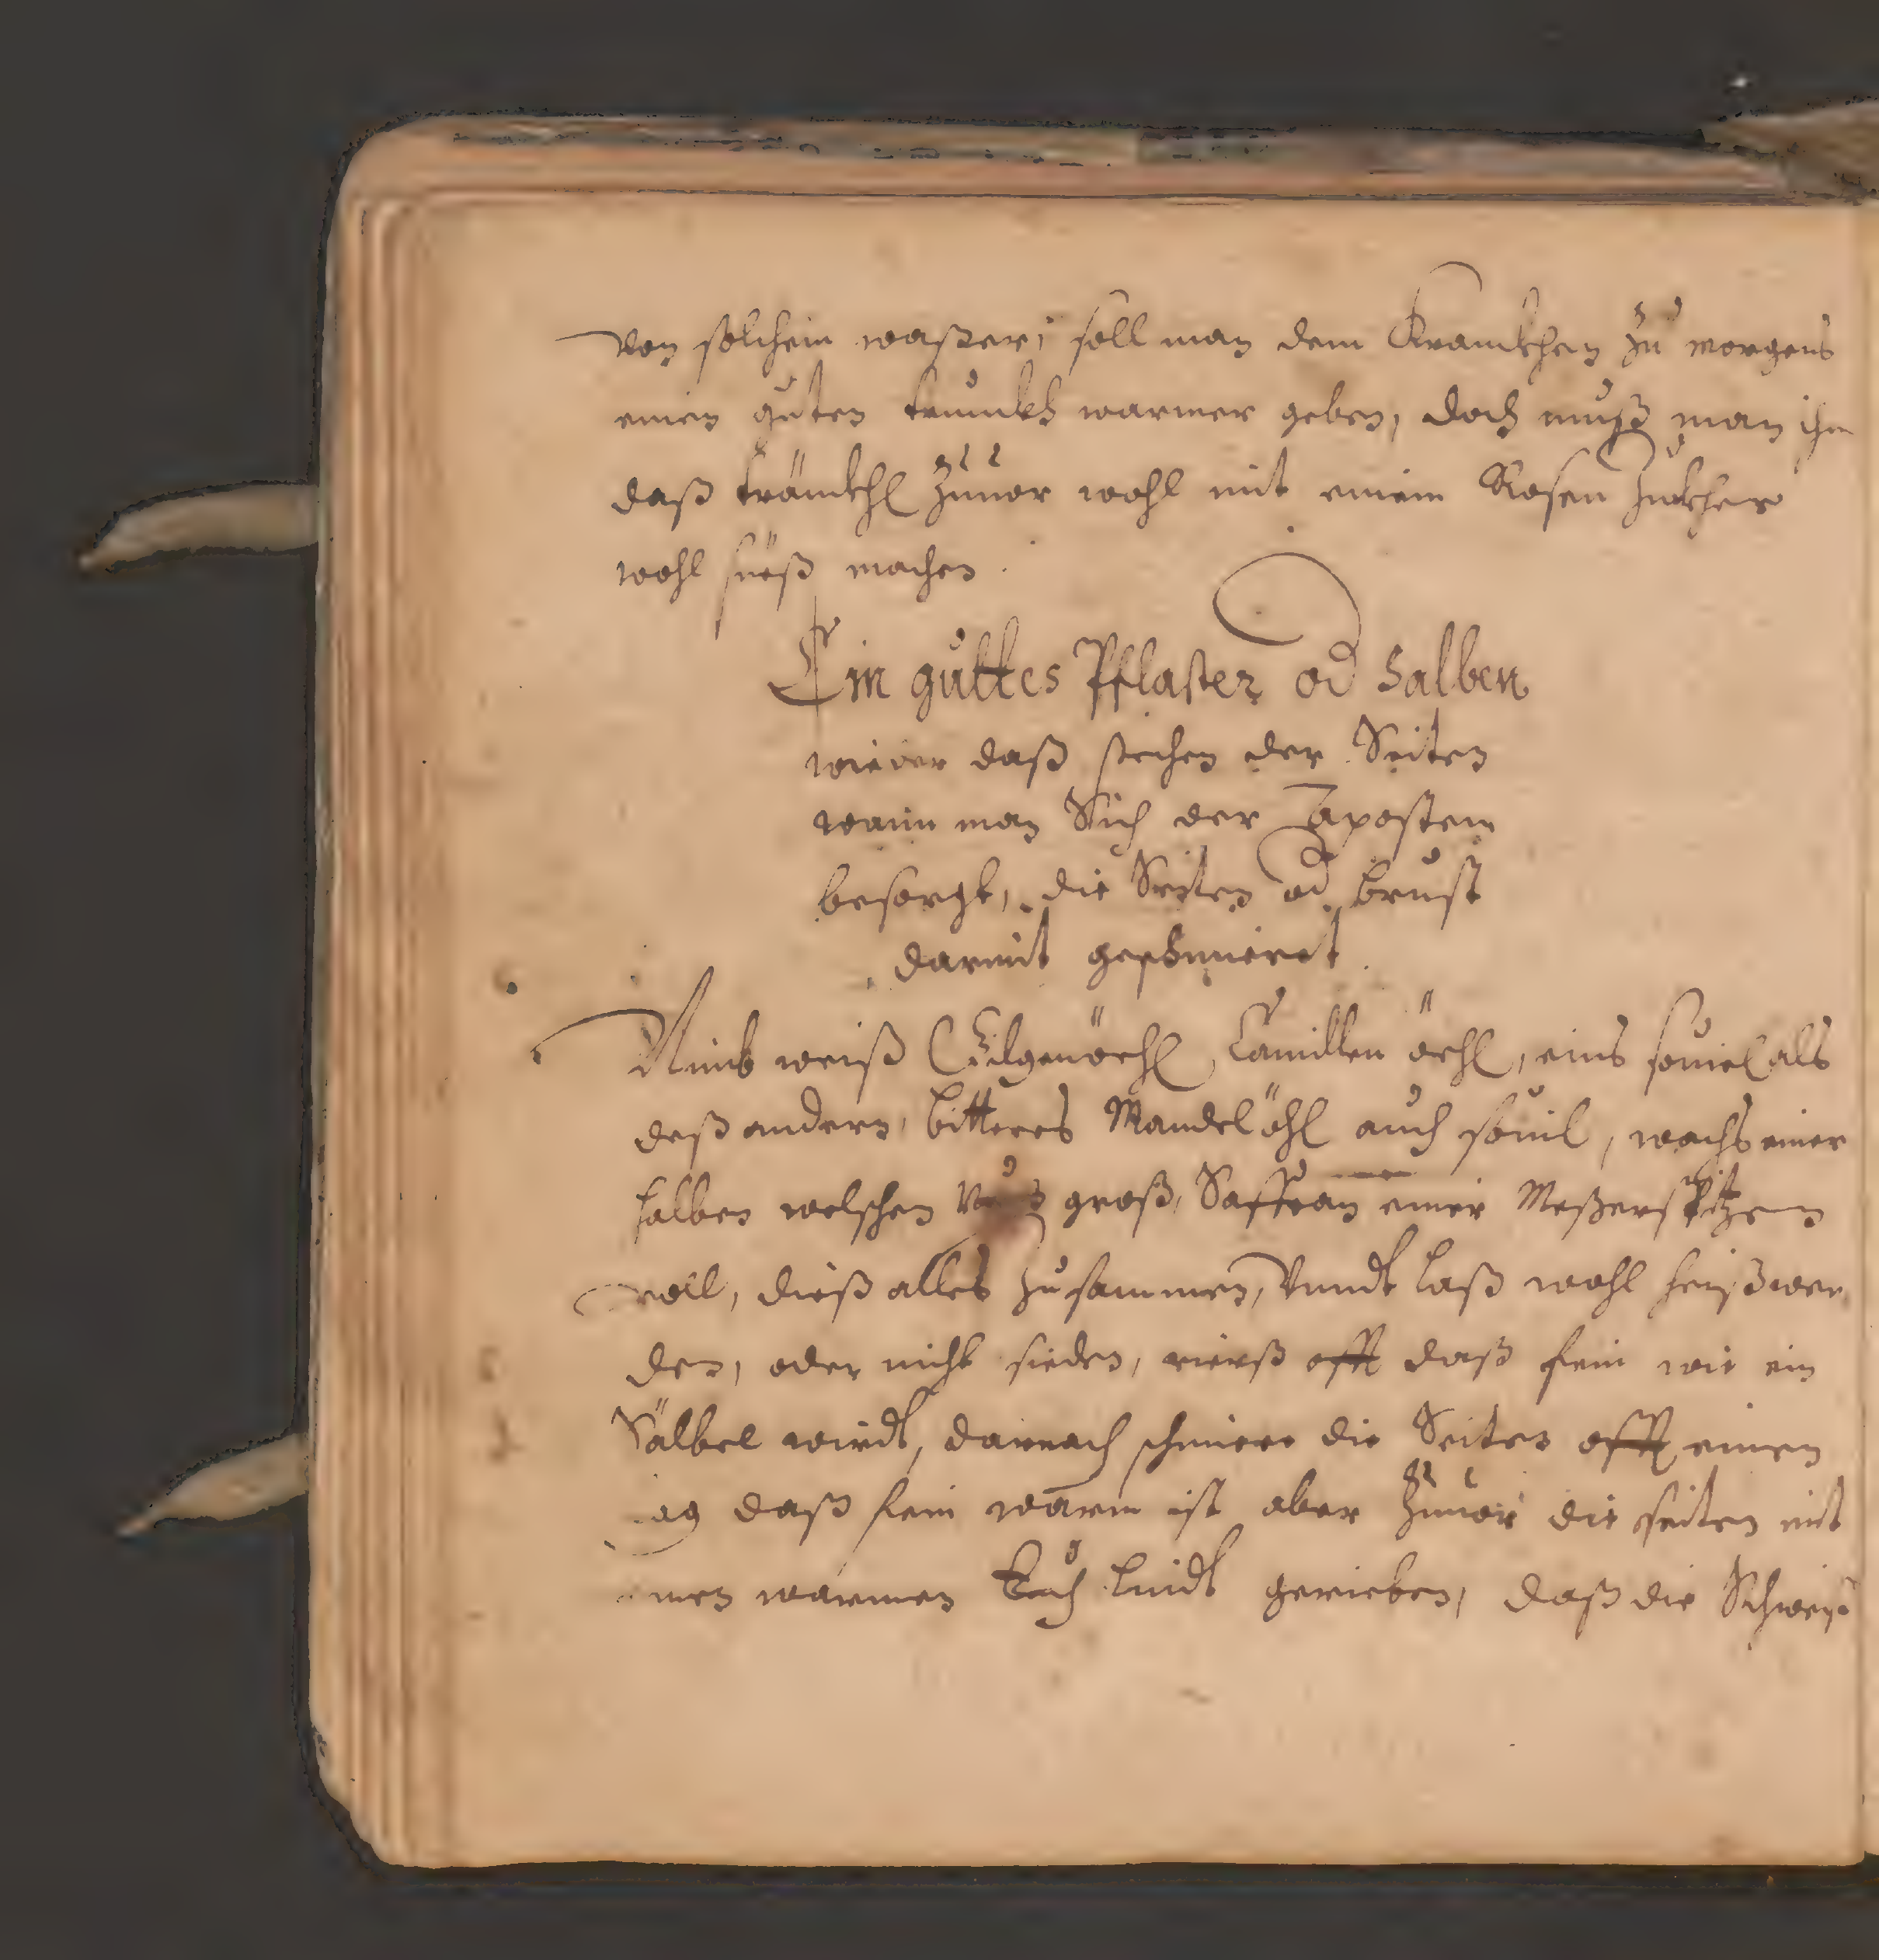 von solchem waßer, soll man dem Kranckhen zu morgens
einen guten trunckh warmer geben, doch muß man ihm
daß tränckhl zuuor wohl mit einem Rosen zuckher
wohl süeß machen.
Ein guttes Pflaster od Salben
wieder daß stechen der Seiten
wann man Sich der Apostem
besorgt, die Seiten od brust
darmit geschmieret.
Nimb weiß Gilgenöehl, Camillen öehl, eins souiel als
deß andern, bitteres Mandelöhl auch souil, wachs einer
halben welschen Nuß groß, Saffran einer Meßerspitzen
voll, dieß alles zusammen, vnndt laß wohl heiß wer
den, oder nicht sieden, rierß offt daß fein wie ein
Sälbel wirdt, darnach schmiere die Seiten offt einen
tag daß fein warm ist aber zuuor die seiten mit
warmen Tuch lindt gerieben, daß die Schweiß